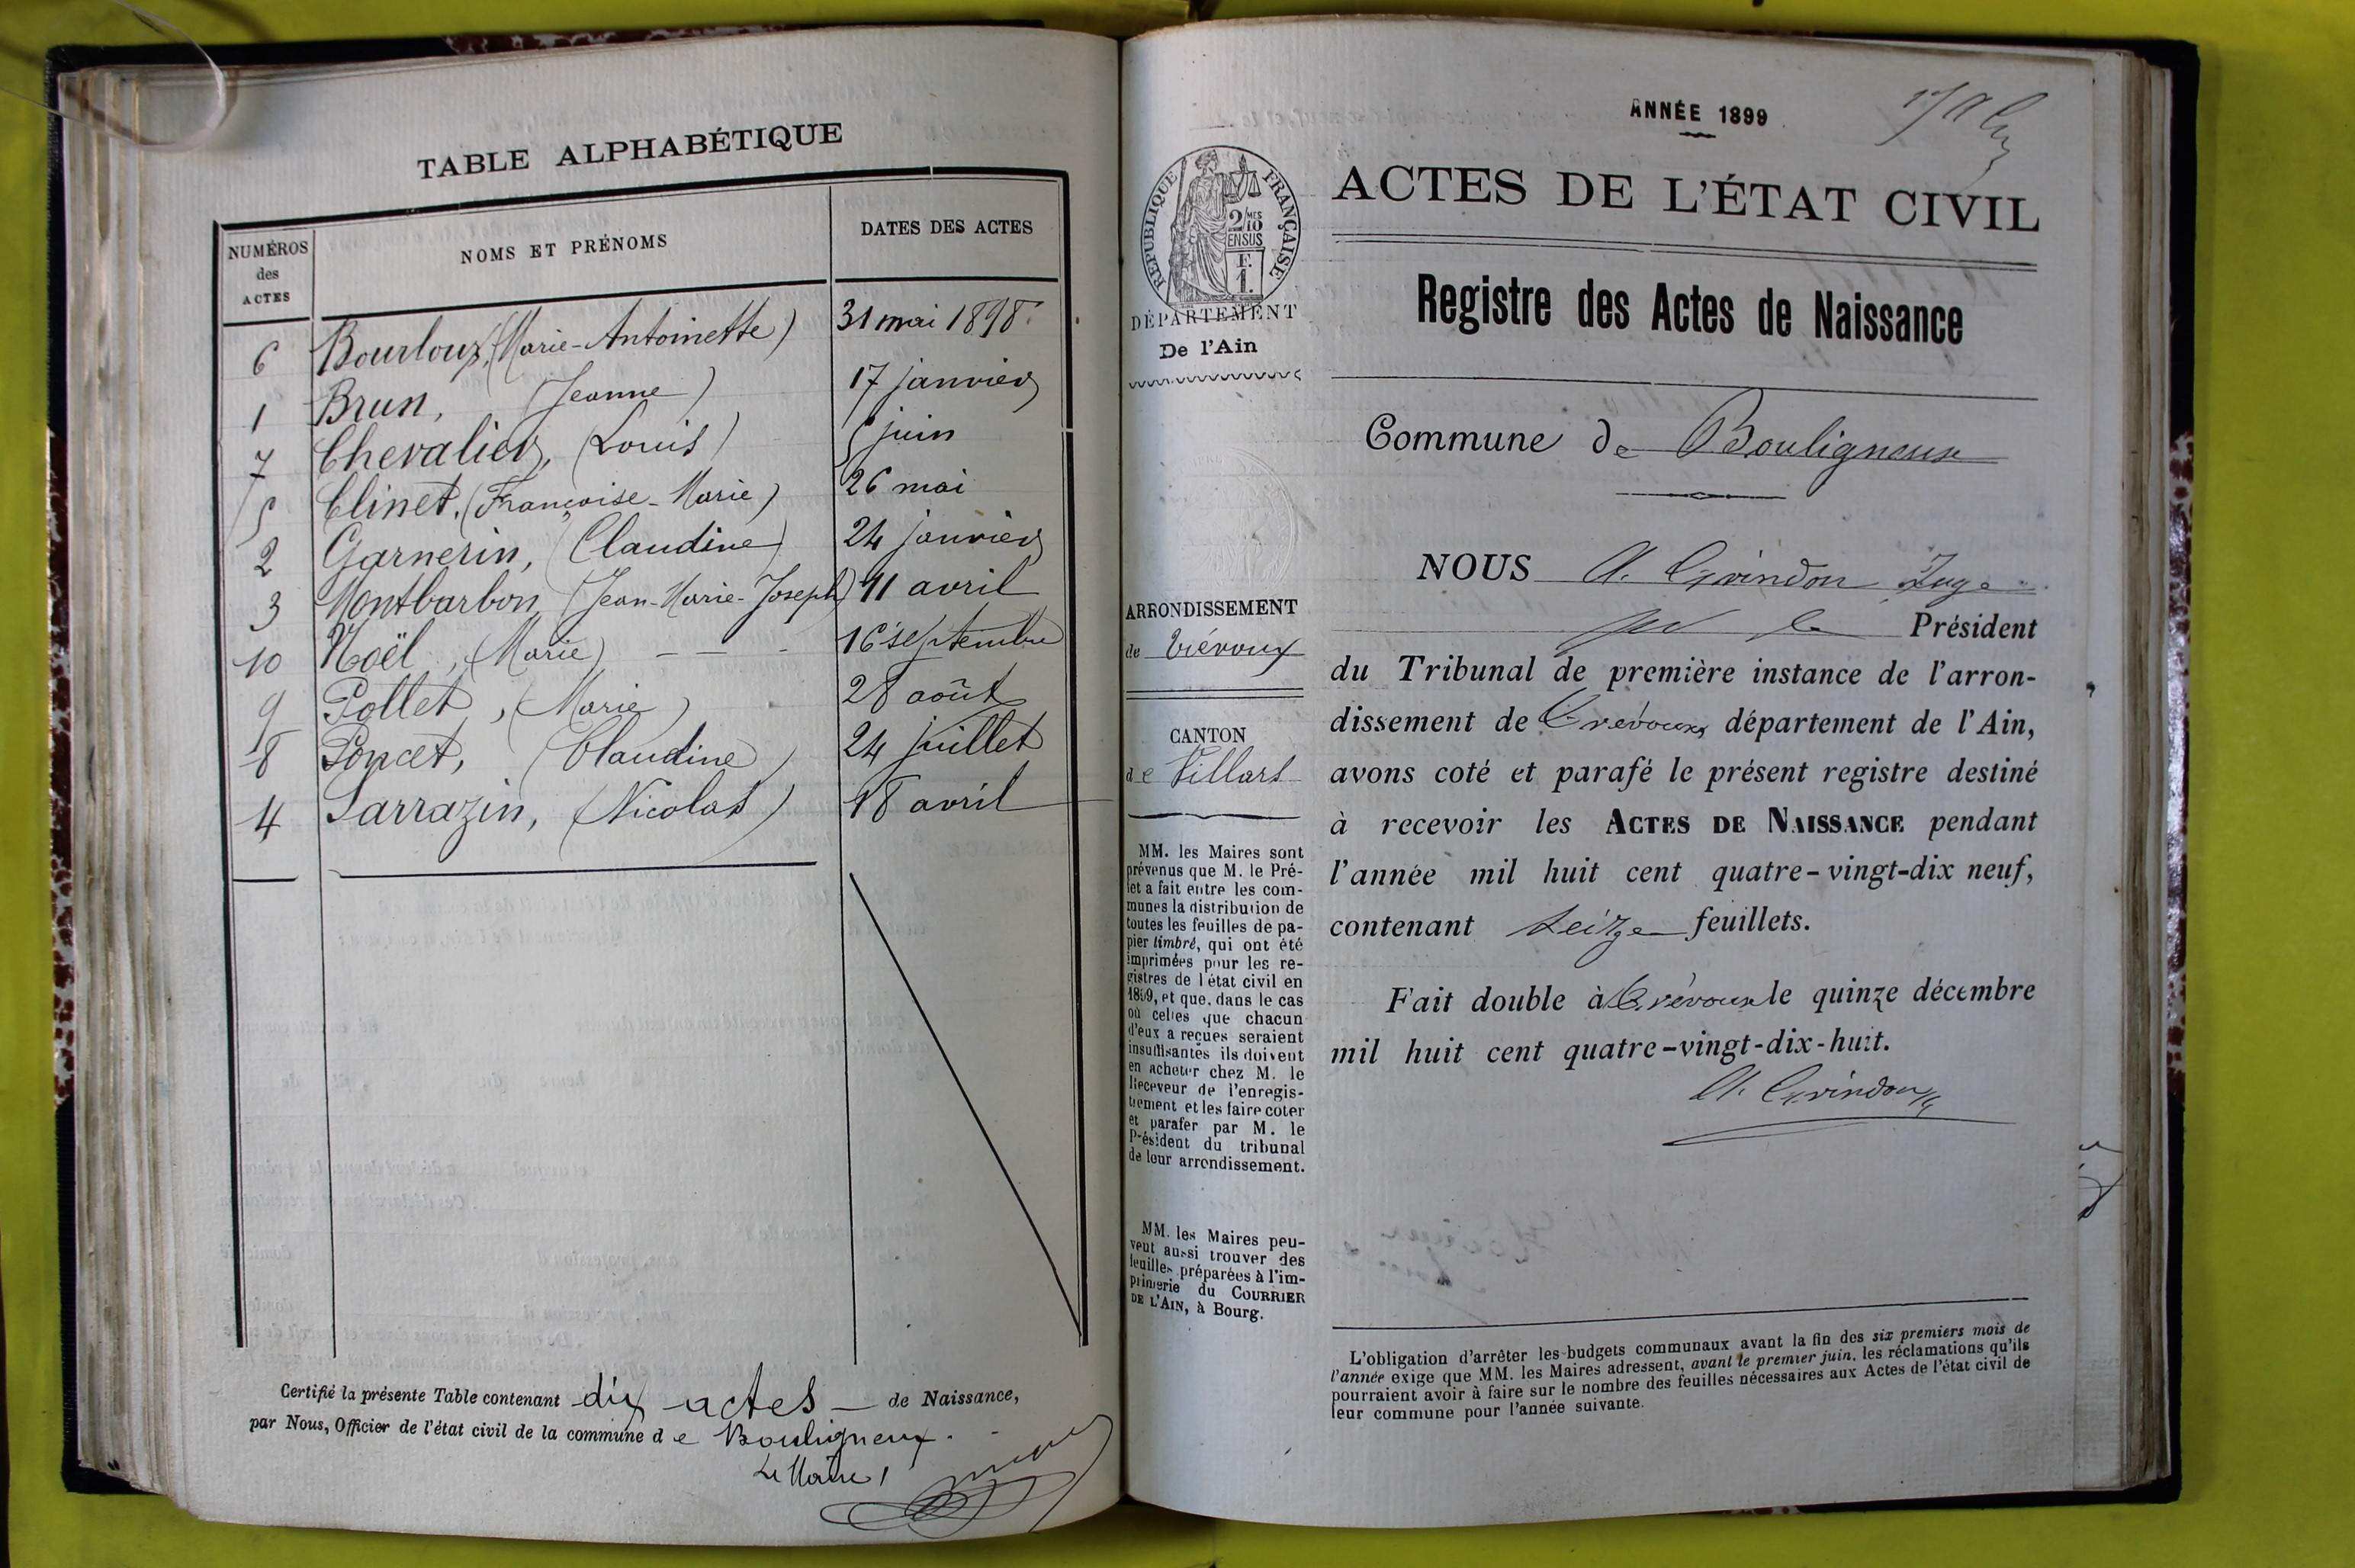 TABLE ALPHABÉTIQUE
NUMÉROS des ACTES
NOMS ET PRÉNOMS
DATES DES ACTES
6 Bourloux, (Marie-Antoinette) 31 mai 1898.
1 Brun, (Jeanne) 17 janvier
7 Chevalier, (Louis) 5 juin
5 Clinet, (Françoise-Marie) 26 mai
2 Garnerin, (Claudine) 24 janvier
3 Montbarbon, (Jean-Marie-Joseph) 11 avril
10 Noël, (Marie) 16 septembre
9 Pollet, (Marie) 28 août
8 Poncet, (Claudine) 24 juillet
4 Sarrazin, (Nicolas) 18 avril
Certifié la présente Table contenant dix actes de Naissance,
par Nous, Officier de l'état civil de la commune de Bouligneux.
Le Maire,
ANNÉE 1899
RÉPUBLIQUE FRANÇAISE
2/10 MES
EN SUS
F.
1.
DÉPARTEMENT
De l'Ain
ARRONDISSEMENT
de Trévoux
CANTON
de Villars
MM. les Maires sont
prévenus que M. le Pré-
fet a fait entre les com-
munes la distribution de
toutes les feuilles de pa-
pier timbré, qui ont été
imprimées pour les re-
gistres de l'état civil en
1899, et que, dans le cas
où celles que chacun
d'eux a reçues seraient
insuffisantes ils doivent
en acheter chez M. le
Receveur de l'enregis-
trement et les faire coter
et parafer par M. le
Président du tribunal
de leur arrondissement.
MM. les Maires peu-
vent aussi trouver des
feuilles préparées à l'im-
primerie du COURRIER
DE L'AIN, à Bourg.
ACTES DE L'ÉTAT CIVIL
Registre des Actes de Naissance
Commune de Bouligneux
NOUS A. Grindon Juge
Président
du Tribunal de première instance de l'arron-
dissement de Trévoux, département de l'Ain,
avons coté et parafé le présent registre destiné
à recevoir les ACTES DE NAISSANCE pendant
l'année mil huit cent quatre-vingt-dix neuf,
contenant seize feuillets.
Fait double à Trévoux le quinze décembre
mil huit cent quatre-vingt-dix-huit.
A. Grindon
L'obligation d'arrêter les budgets communaux avant la fin des six premiers mois de
l'année exige que MM. les Maires adressent, avant le premier juin, les réclamations qu'ils
pourraient avoir à faire sur le nombre des feuilles nécessaires aux Actes de l'état civil de
leur commune pour l'année suivante.